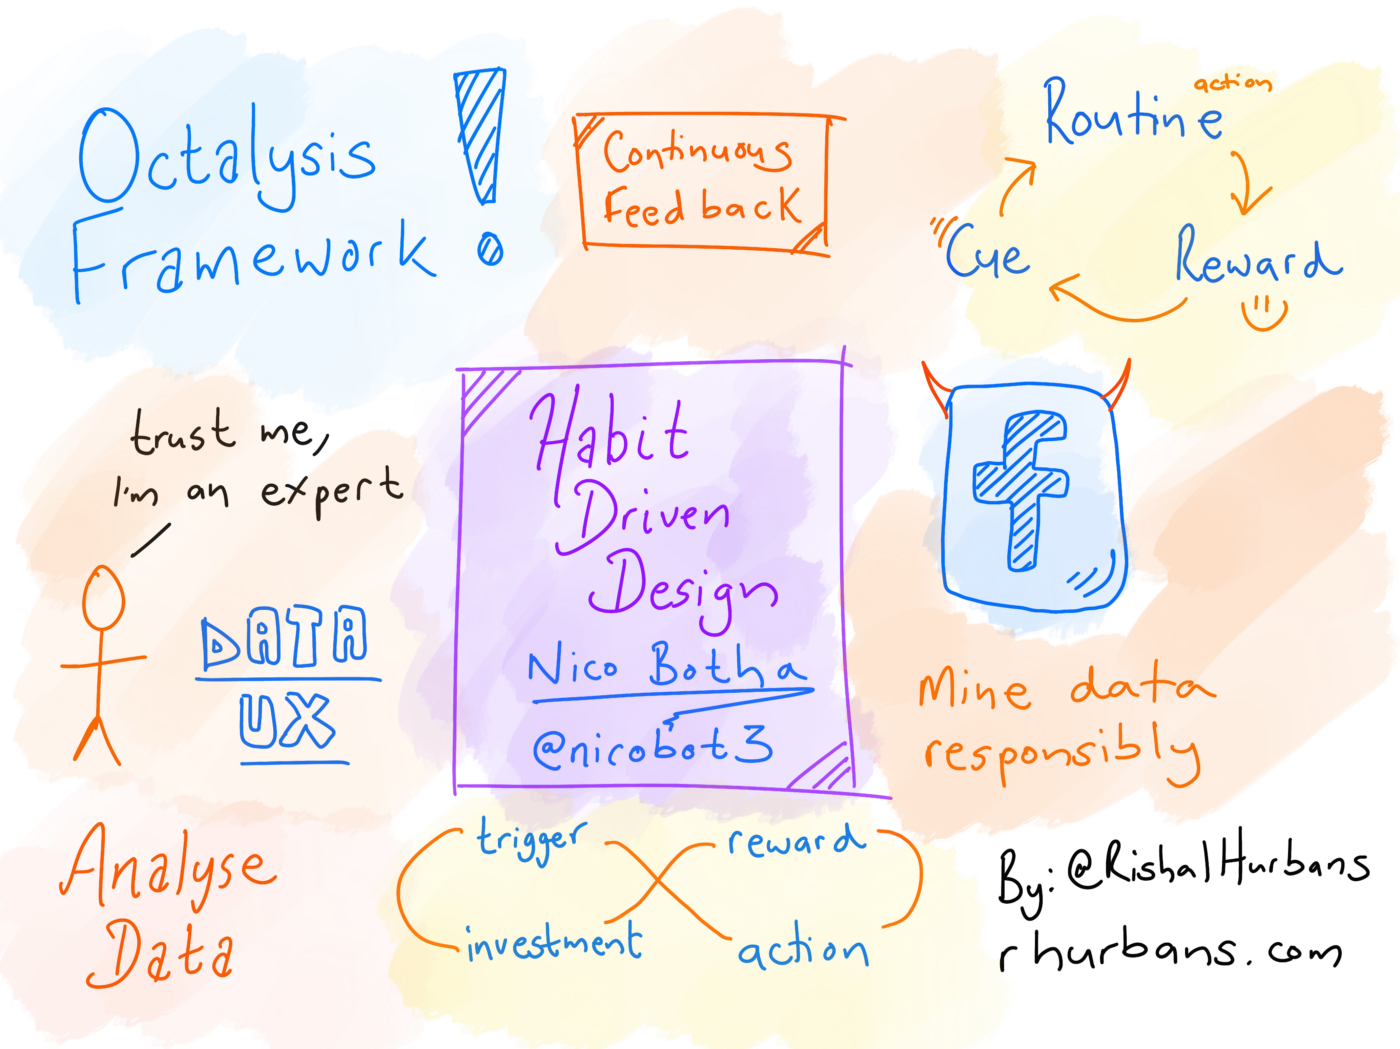 Octalysis
Framework !
Continuous
Feedback
Routine
action
Cue
Reward
trust me,
I'm an expert
DATA
UX
Habit
Driven
Design
Nico Botha
@nicobot3
f
Mine data
responsibly
Analyse
Data
trigger
reward
investment
action
By: @RishalHurbans
rhurbans.com